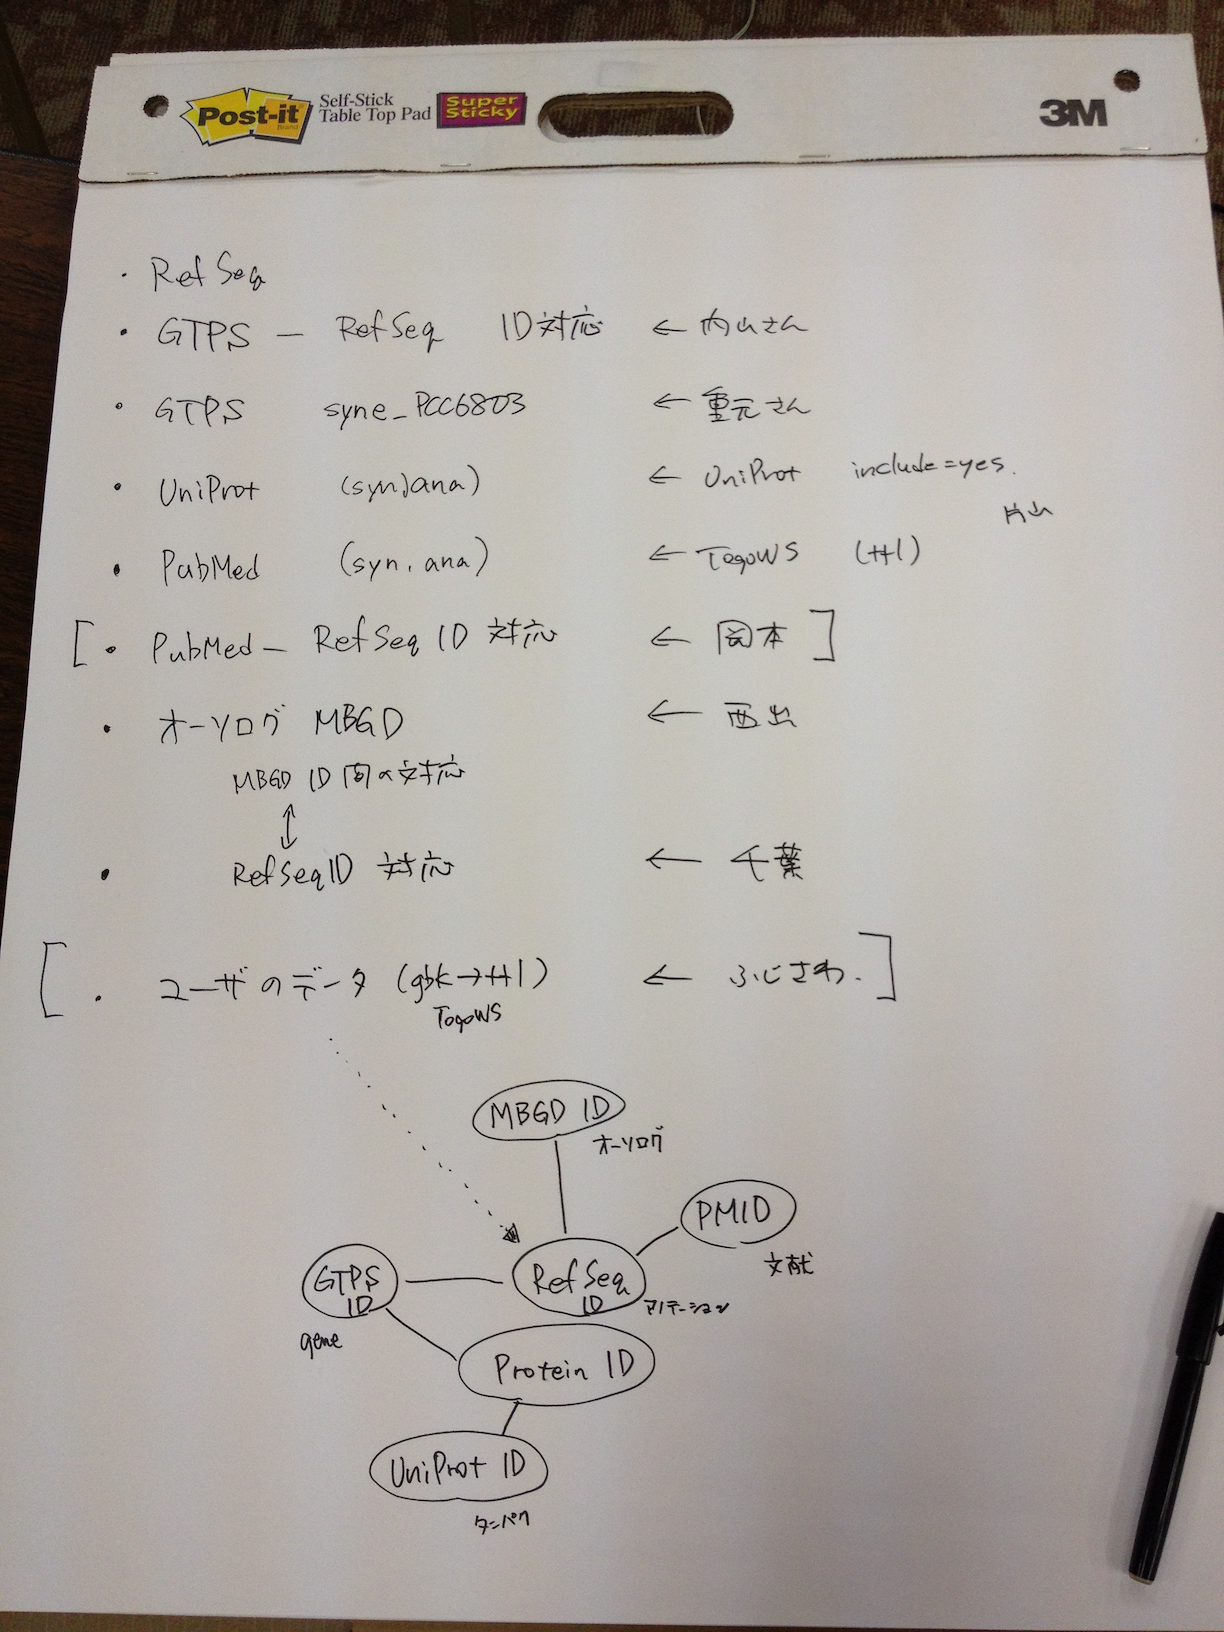 Post-it
Brand
Self-Stick
Table Top Pad
Super
Sticky
3M
・ RefSeq
・ GTPS — RefSeq ID対応 ← 内山さん
・ GTPS syne_PCC6803 ← 重元さん
・ UniProt (syn, ana) ← UniProt include=yes.
片山
・ PubMed (syn, ana) ← TogoWS (ttl)
[ ・ PubMed — RefSeq ID 対応 ← 岡本 ]
・ オーソログ MBGD ← 西出
MBGD ID 間の対応
↕
・ RefSeqID 対応 ← 千葉
[ ・ ユーザのデータ (gbk→ttl) ← ふじさわ. ]
TogoWS
MBGD ID
オーソログ
PMID
文献
GTPS
ID
gene
RefSeq
ID
アノテーション
Protein ID
UniProt ID
タンパク